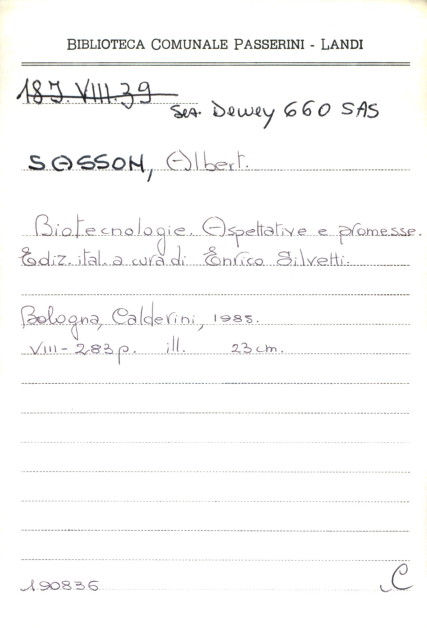 BIBLIOTECA COMUNALE PASSERINI - LANDI
187.VIII.39
Sez. Dewey 660 SAS
SASSON, Albert.
Biotecnologie. Aspettative e promesse.
Ediz. ital. a cura di Enrico Silvetti.
Bologna, Calderini, 1985.
VIII-283 p. ill. 23 cm.
190836
C